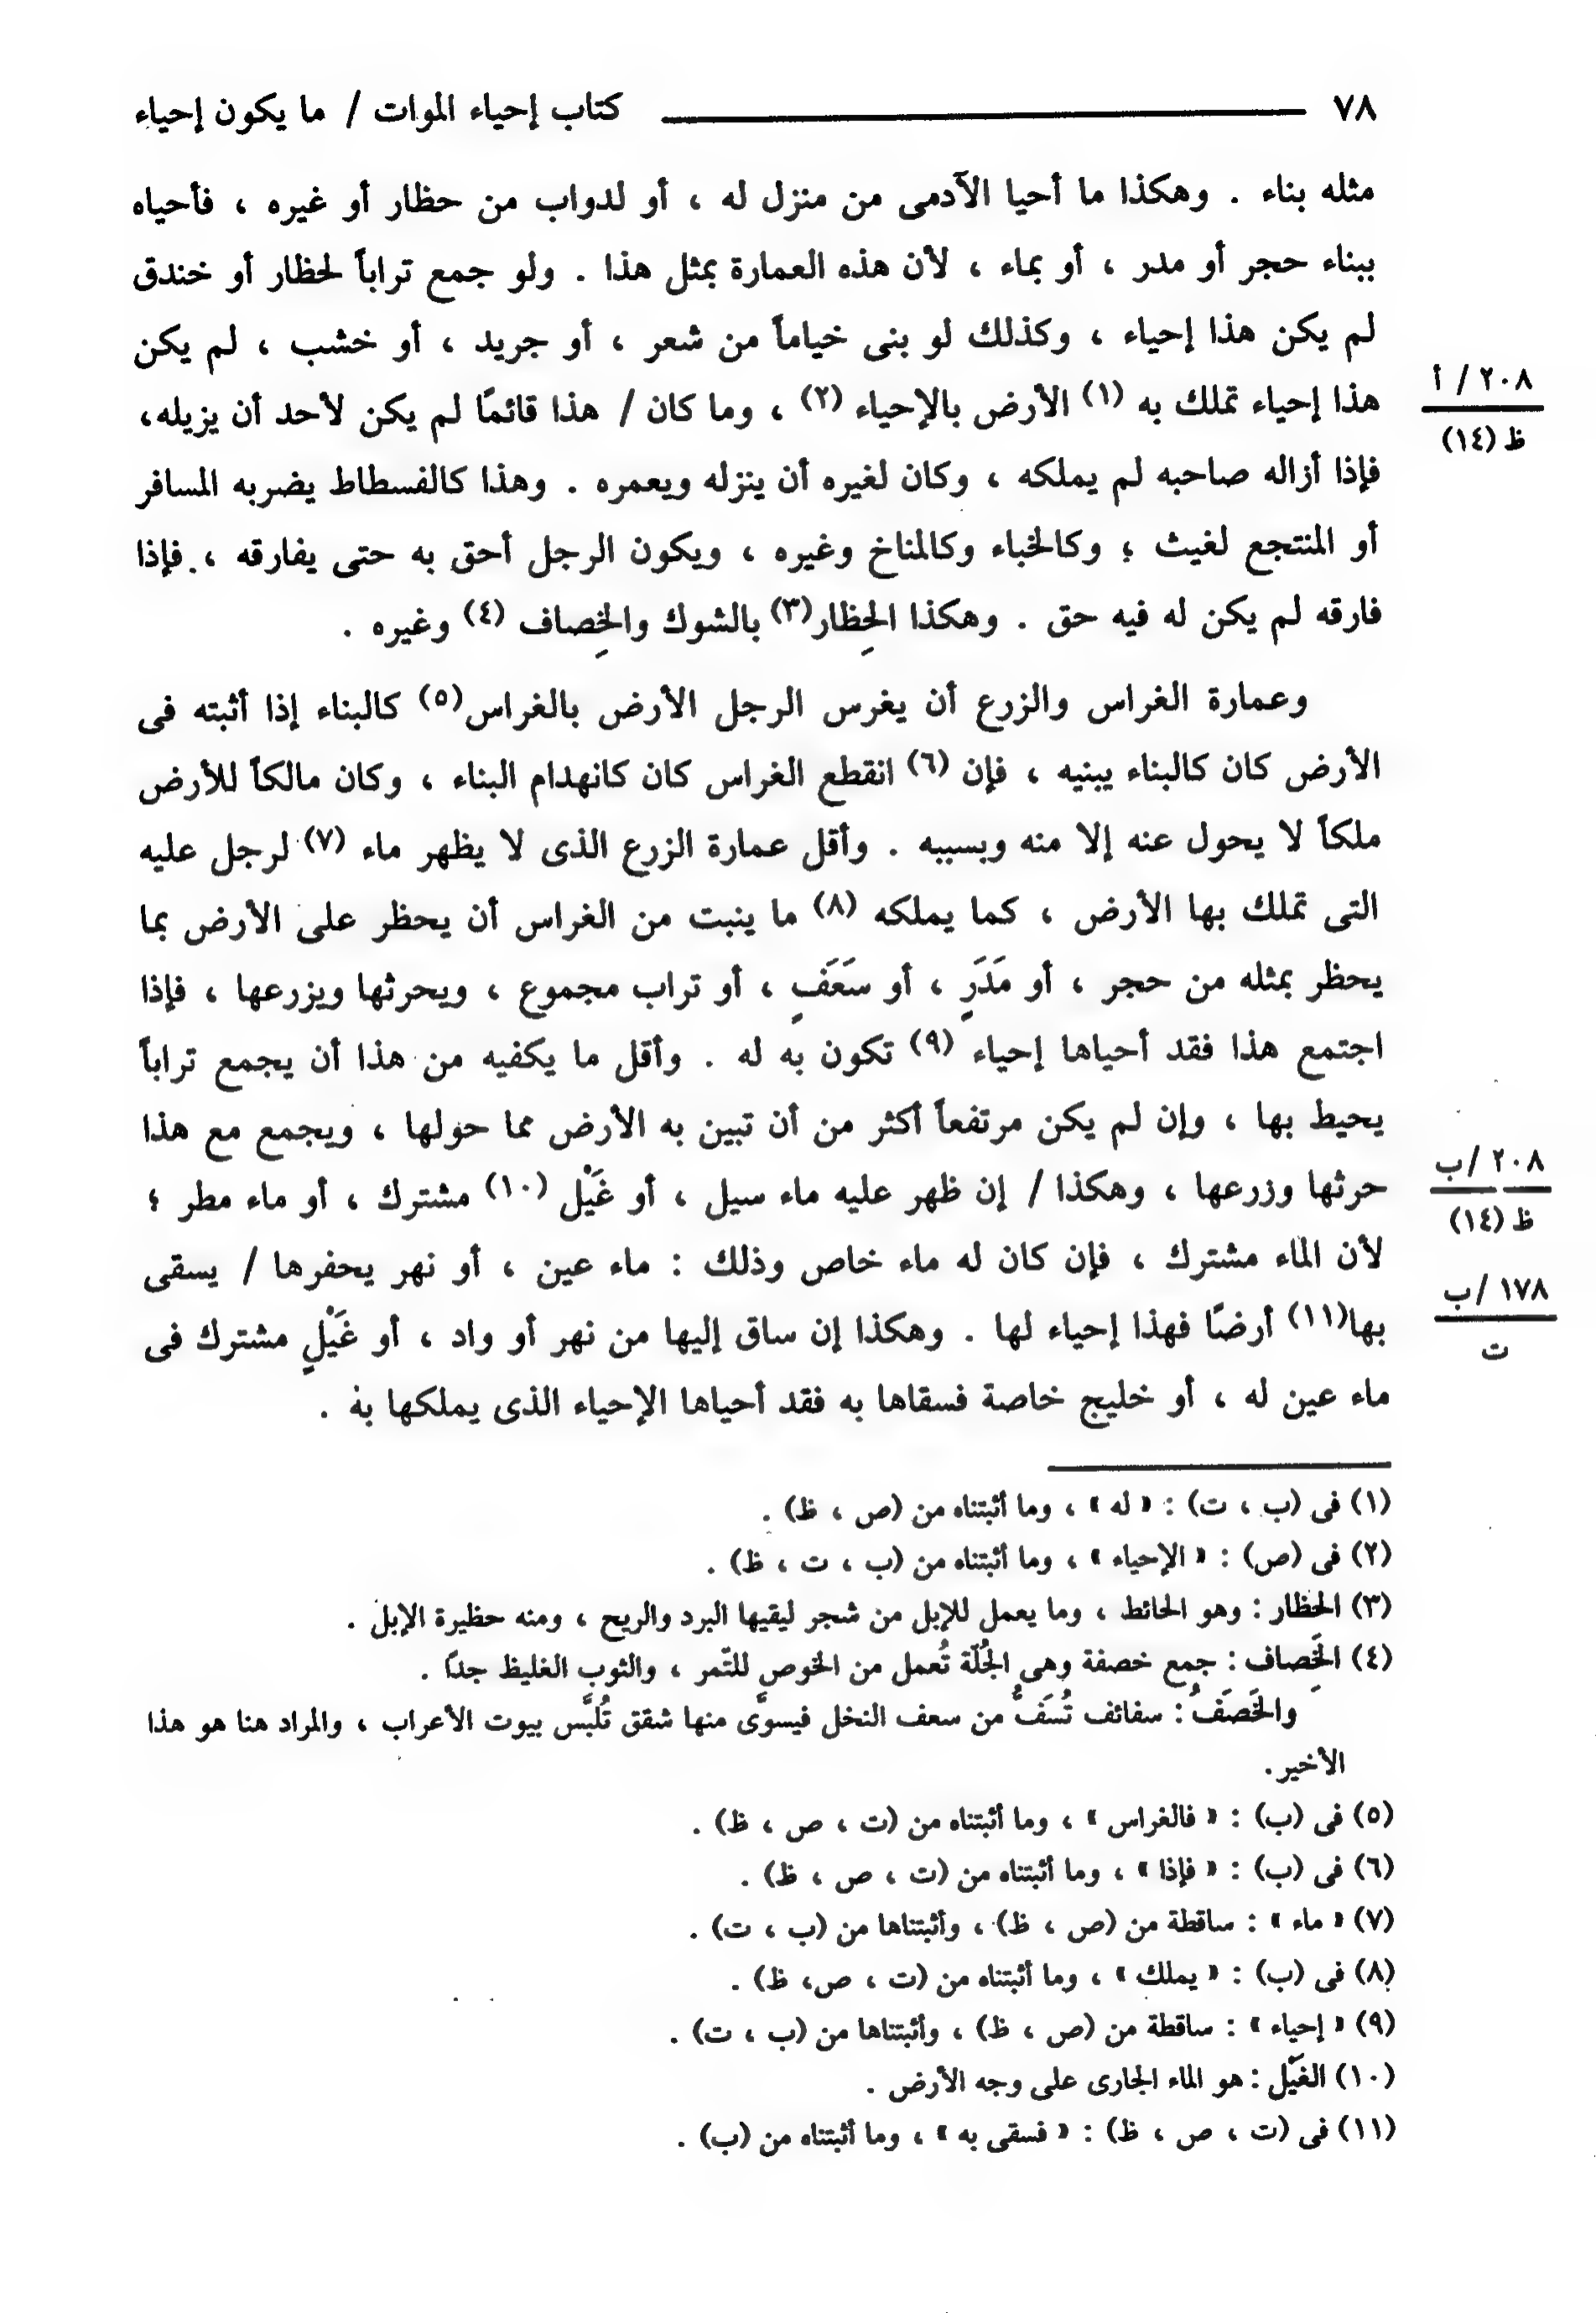 ٧٨ كتاب إحياء الموات / ما يكون إحياء
مثله بناء . وهكذا ما أحيا الآدمى من منزل له ، أو لدواب من حظار أو غيره ، فأحياه
ببناء حجر أو مدر ، أو بماء ، لأن هذه العمارة بمثل هذا . ولو جمع تراباً لحظار أو خندق
لم يكن هذا إحياء ، وكذلك لو بنى خياماً من شعر ، أو جريد ، أو خشب ، لم يكن
هذا إحياء تملك به (١) الأرض بالإحياء (٢) ، وما كان / هذا قائمًا لم يكن لأحد أن يزيله،
٢٠٨ / أ
ظ (١٤)
فإذا أزاله صاحبه لم يملكه ، وكان لغيره أن ينزله ويعمره . وهذا كالفسطاط يضربه المسافر
أو المنتجع لغيث ؛ وكالخباء وكالمناخ وغيره ، ويكون الرجل أحق به حتى يفارقه ، فإذا
فارقه لم يكن له فيه حق . وهكذا الحِظار(٣) بالشوك والخِصاف (٤) وغيره .
وعمارة الغراس والزرع أن يغرس الرجل الأرض بالغراس(٥) كالبناء إذا أثبته فى
الأرض كان كالبناء يبنيه ، فإن (٦) انقطع الغراس كان كانهدام البناء ، وكان مالكاً للأرض
ملكاً لا يحول عنه إلا منه وبسببه . وأقل عمارة الزرع الذى لا يظهر ماء (٧) لرجل عليه
التى تملك بها الأرض ، كما يملكه (٨) ما ينبت من الغراس أن يحظر على الأرض بما
يحظر بمثله من حجر ، أو مَدَرٍ ، أو سَعَفٍ ، أو تراب مجموع ، ويحرثها ويزرعها ، فإذا
اجتمع هذا فقد أحياها إحياء (٩) تكون به له . وأقل ما يكفيه من هذا أن يجمع تراباً
يحيط بها ، وإن لم يكن مرتفعاً أكثر من أن تبين به الأرض مما حولها ، ويجمع مع هذا
حرثها وزرعها ، وهكذا / إن ظهر عليه ماء سيل ، أو غَيْل (١٠) مشترك ، أو ماء مطر ؛
٢٠٨ /ب
ظ (١٤)
لأن الماء مشترك ، فإن كان له ماء خاص وذلك : ماء عين ، أو نهر يحفرها / يسقى
١٧٨ /ب
ت
بها(١١) أرضًا فهذا إحياء لها . وهكذا إن ساق إليها من نهر أو واد ، أو غَيْلٍ مشترك فى
ماء عين له ، أو خليج خاصة فسقاها به فقد أحياها الإحياء الذى يملكها به .
(١) فى (ب ، ت) : « له » ، وما أثبتناه من (ص ، ظ) .
(٢) فى (ص) : « الإحياء » ، وما أثبتناه من (ب ، ت ، ظ) .
(٣) الحظار : وهو الحائط ، وما يعمل للإبل من شجر ليقيها البرد والريح ، ومنه حظيرة الإبل .
(٤) الخَِصاف : جمع خصفة وهى الجُلّة تُعمل من الخوص للتّمر ، والثوب الغليظ جدًا .
والخَصَفُ : سفائف تُسَفُّ من سعف النخل فيسوَّى منها شقق تُلبَّس بيوت الأعراب ، والمراد هنا هو هذا
الأخير.
(٥) فى (ب) : « فالغراس » ، وما أثبتناه من (ت ، ص ، ظ) .
(٦) فى (ب) : « فإذا » ، وما أثبتناه من (ت ، ص ، ظ) .
(٧) « ماء » : ساقطة من (ص ، ظ) ، وأثبتناها من (ب ، ت) .
(٨) فى (ب) : « يملك » ، وما أثبتناه من (ت ، ص، ظ) .
(٩) « إحياء » : ساقطة من (ص ، ظ) ، وأثبتناها من (ب ، ت) .
(١٠) الغَيْل : هو الماء الجارى على وجه الأرض .
(١١) فى (ت ، ص ، ظ) : « فسقى به » ، وما أثبتناه من (ب) .